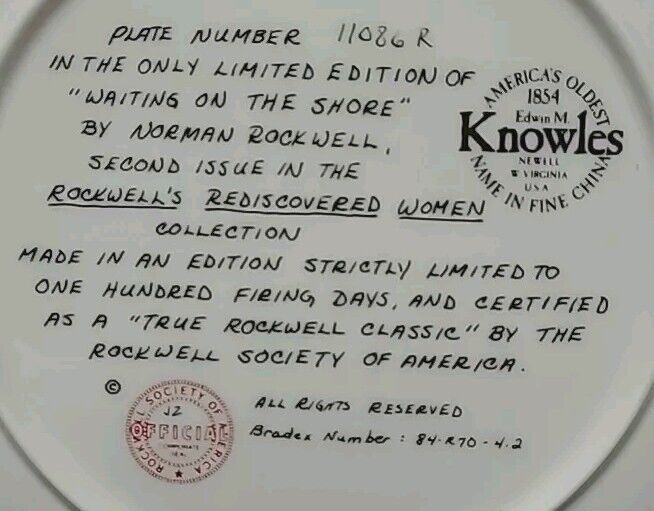 PLATE NUMBER 11086 R
IN THE ONLY LIMITED EDITION OF
"WAITING ON THE SHORE"
BY NORMAN ROCKWELL,
SECOND ISSUE IN THE
ROCKWELL'S REDISCOVERED WOMEN
COLLECTION
MADE IN AN EDITION STRICTLY LIMITED TO
ONE HUNDRED FIRING DAYS, AND CERTIFIED
AS A "TRUE ROCKWELL CLASSIC" BY THE
ROCKWELL SOCIETY OF AMERICA.
AMERICA'S OLDEST
1854
Edwin M.
Knowles
NEWELL
W VIRGINIA
USA
NAME IN FINE CHINA
©
ROCKWELL SOCIETY OF AMERICA
JZ
OFFICIAL
SEAL
ALL RIGHTS RESERVED
Bradex Number: 84-R70-4.2